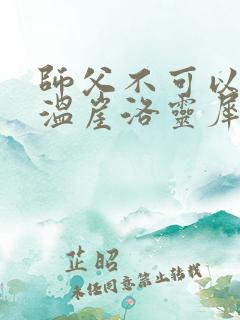 師父不可以
溫崖洛靈犀
芷昭
未經同意禁止轉載